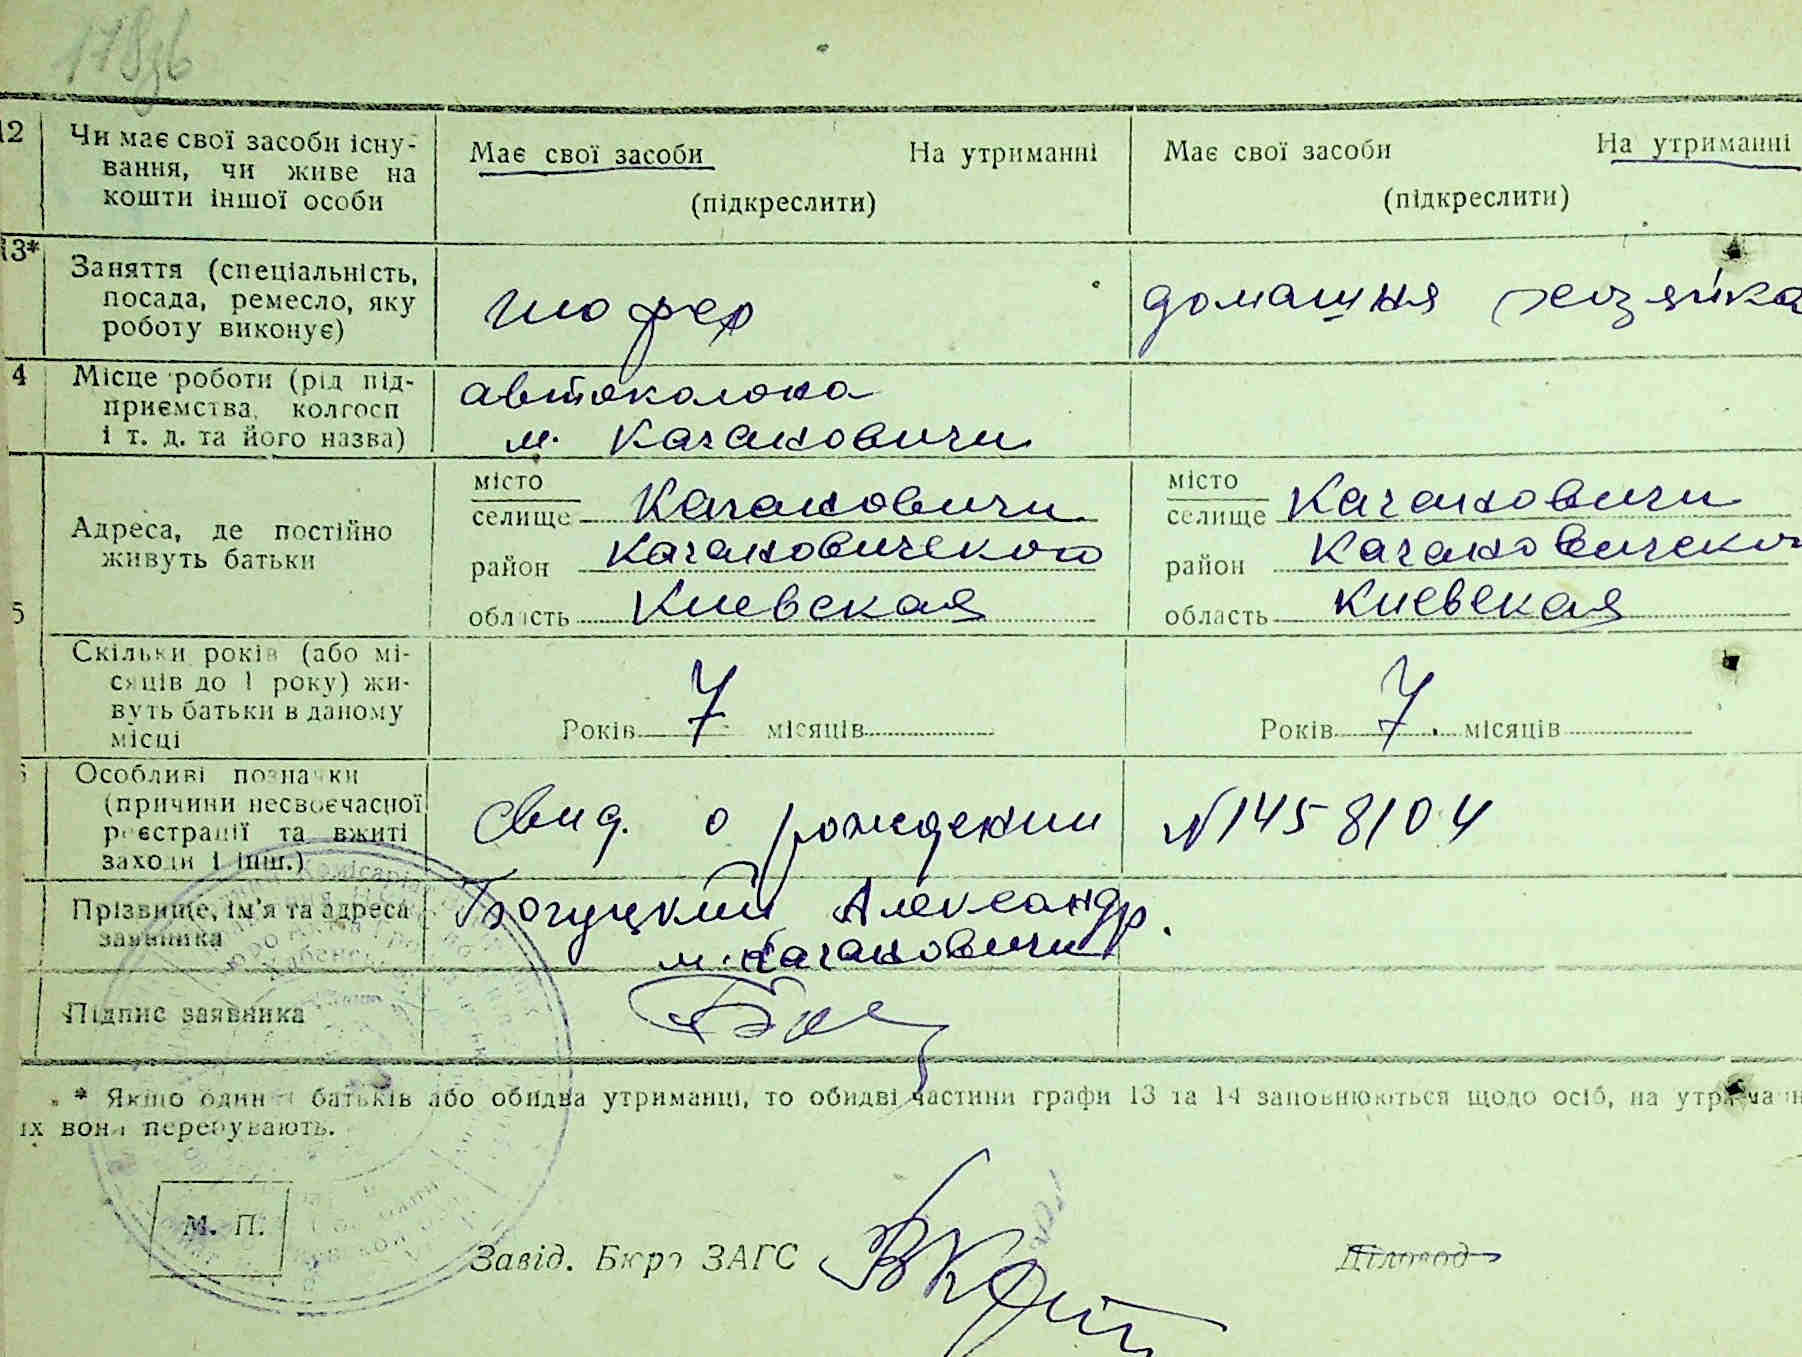 178зб
12 Чи має свої засоби існу-
вання, чи живе на
кошти іншої особи
Має свої засоби На утриманні
(підкреслити)
Має свої засоби На утриманні
(підкреслити)
13* Заняття (спеціальність,
посада, ремесло, яку
роботу виконує)
шофер
домашня хозяйка
4 Місце роботи (рід під-
приємства, колгосп
і т. д. та його назва)
автоколона
м. Кагановичи
5 Адреса, де постійно
живуть батьки
місто
селище Кагановичи
район Кагановичского
область Киевская
місто
селище Кагановичи
район Кагановичско
область Киевская
Скільки років (або мі-
сяців до 1 року) жи-
вуть батьки в даному
місці
Років 7 місяців
Років 7. місяців
Особливі позначки
(причини несвоєчасної
реєстрації та вжиті
заходи і інш.)
Свид. о рождении
N 1458104
Прізвище, ім'я та адреса
заявника
Богуцкий Александр.
м. Кагановичи
Підпис заявника
* Якщо один з батьків або обидва утриманці, то обидві частини графи 13 та 14 заповнюються щодо осіб, на утриманн
їх вони перебувають.
М. П.
Завід. Бюро ЗАГС
Діловод